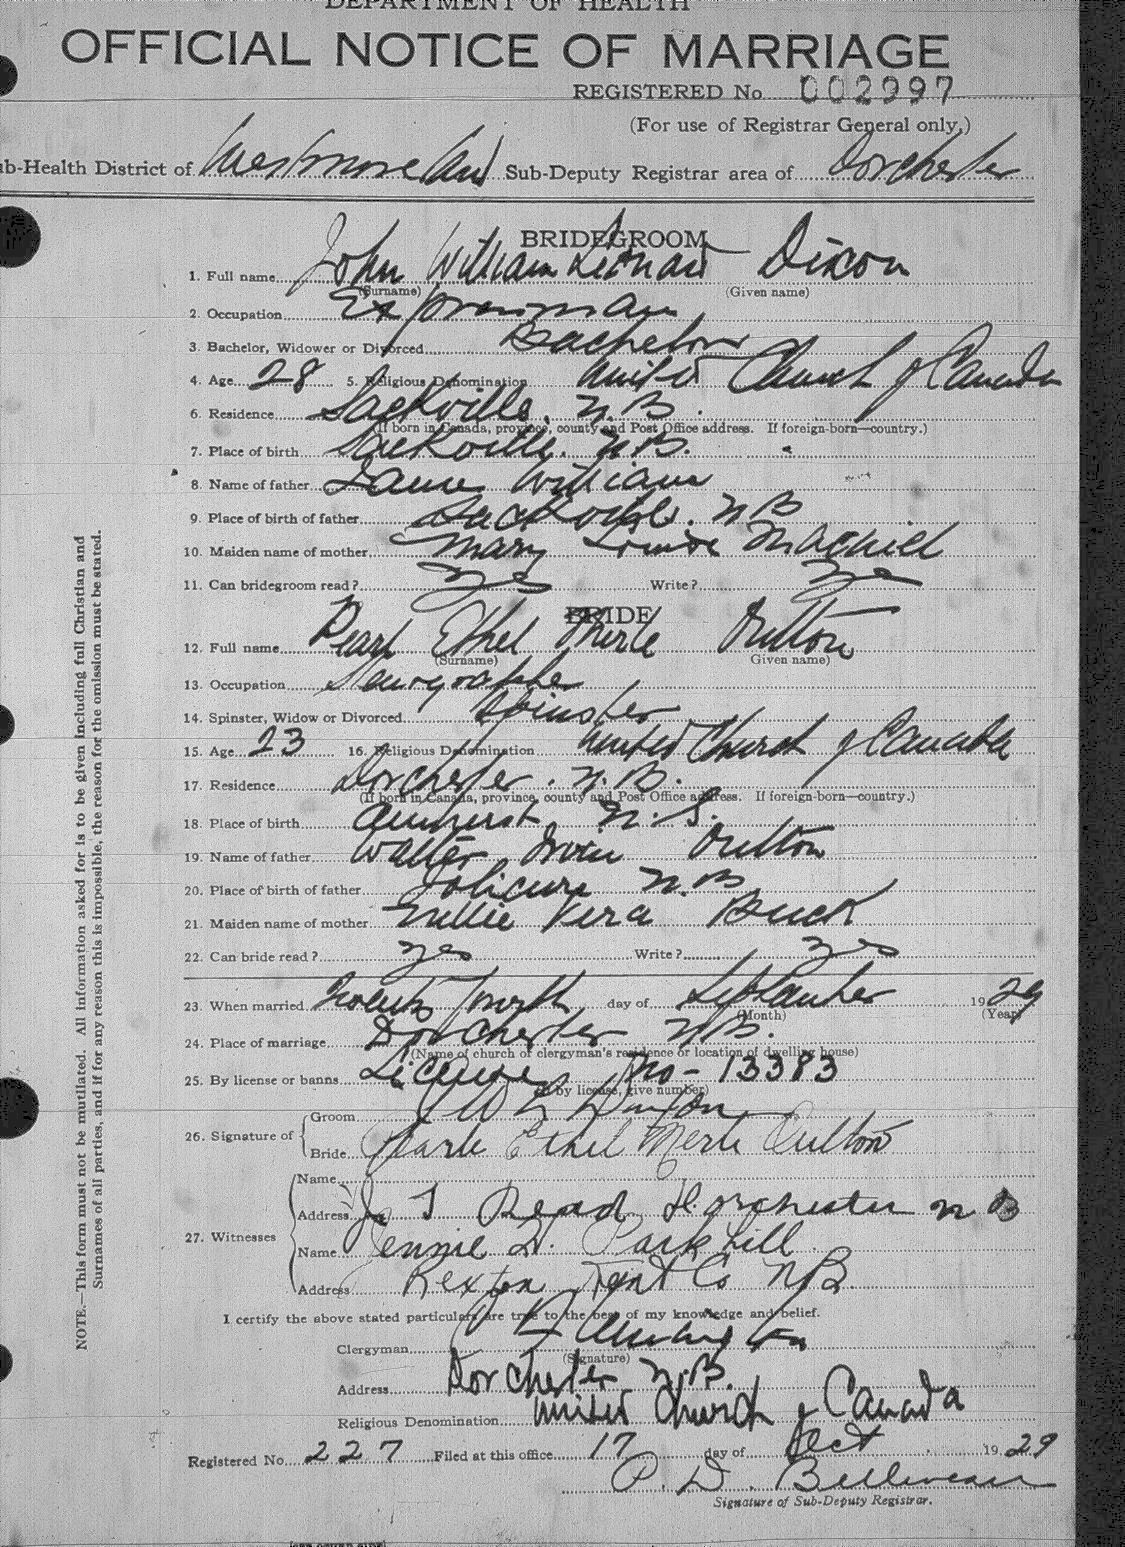 DEPARTMENT OF HEALTH
OFFICIAL NOTICE OF MARRIAGE
REGISTERED No. 002997
(For use of Registrar General only.)
ub-Health District of Westmoreland Sub-Deputy Registrar area of Dorchester
BRIDEGROOM
1. Full name John William Leonard Dixon
(Surname) (Given name)
2. Occupation Expressman
3. Bachelor, Widower or Divorced Bachelor
4. Age 28 5. Religious Denomination United Church of Canada
6. Residence Sackville. N.B.
(If born in Canada, province, county and Post Office address. If foreign-born—country.)
7. Place of birth Sackville. N.B.
8. Name of father James William
9. Place of birth of father Sackville. N B
10. Maiden name of mother Mary Louise
11. Can bridegroom read? Yes Write? Yes
BRIDE
12. Full name Pearl Ethel Merle Oulton
(Surname) Given name)
13. Occupation Stenographer
14. Spinster, Widow or Divorced Spinster
15. Age 23 16. Religious Denomination United Church of Canada
17. Residence Dorchester. N.B.
(If born in Canada, province, county and Post Office address. If foreign-born—country.)
18. Place of birth Amherst N.S.
19. Name of father Walter Irvin Oulton
20. Place of birth of father Jolicure N.B.
21. Maiden name of mother Nellie Vera Buck
22. Can bride read? Yes Write? Yes
23. When married Twenty Fourth day of September 1929
(Month) (Year)
24. Place of marriage Dorchester N.B.
(Name of church of clergyman's residence or location of dwelling house)
25. By license or banns License No- 13383
(If by license, give number)
26. Signature of Groom J W L Dixon
Bride Pearle Ethel Merle Oulton
27. Witnesses Name
Address J. T Read Dorchester N B
Name Jennie D. Parkhill
Address Rexton Kent Co NB
I certify the above stated particulars are true to the best of my knowledge and belief.
Clergyman
(Signature)
Address Dorchester N.B.
Religious Denomination United Church of Canada
Registered No. 227 Filed at this office 17 day of Oct 1929
P. D. Belliveau
Signature of Sub-Deputy Registrar.
NOTE.—This form must not be mutilated. All information asked for is to be given including full Christian and
Surnames of all parties, and if for any reason this is impossible, the reason for the omission must be stated.